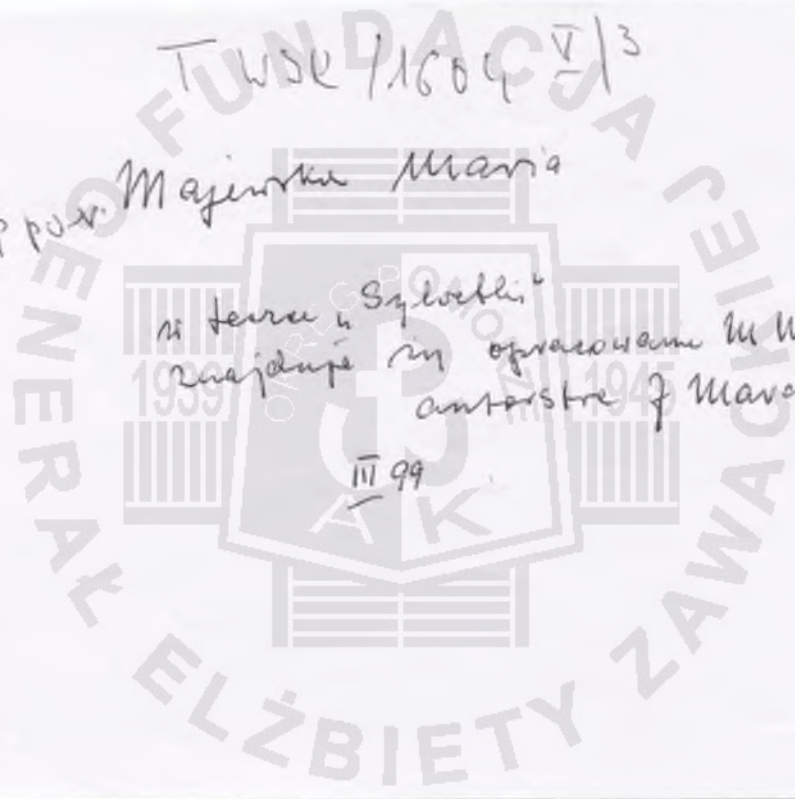 T. WSK /1604 V/3
Majewska Maria
w teczce „Sylwetki"
znajduje się opracowanie M M
autorstwa J Mar
III 99
FUNDACJA
GENERAŁ ELŻBIETY ZAWACKIEJ
OKRĘG POMORZE
1939 1945
AK